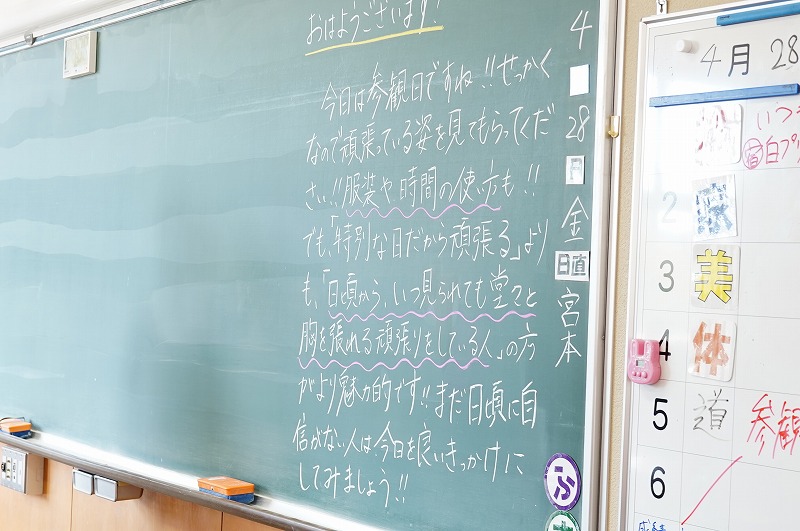 おはようございます!
今日は参観日ですね!!せっかく
なので頑張っている姿を見てもらってくだ
さい!!服装や時間の使い方も!!
でも、「特別な日だから頑張る」より
も、「日頃から、いつ見られても堂々と
胸を張れる頑張りをしている人」の方
がより魅力的です!!まだ日頃に自
信がない人は今日を良いきっかけに
してみましょう!!
4
28
日
金
日直
宮本
ふ
4月28
いつ
宿白プリ
2
3 美
4 体
5 道 参観
6